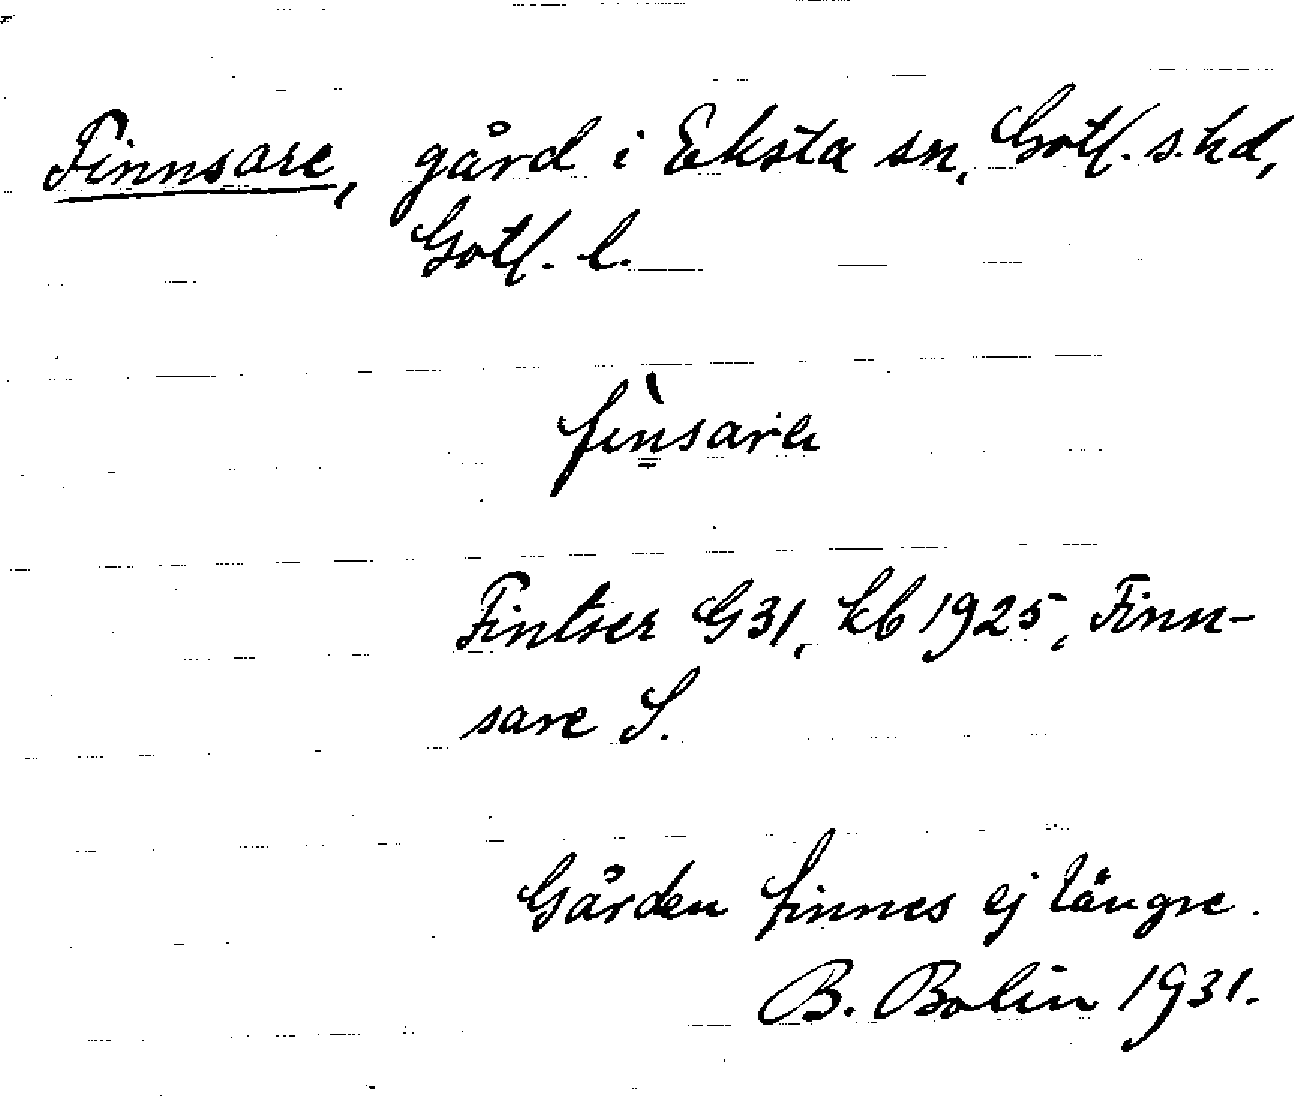 Finnsare, gård i Eksta sn, Gotl. s. hd,
Gotl. l.
Fintser G31, kb 1925, Finn-
sare S.
Gården finnes ej längre.
B. Bolin 1931.